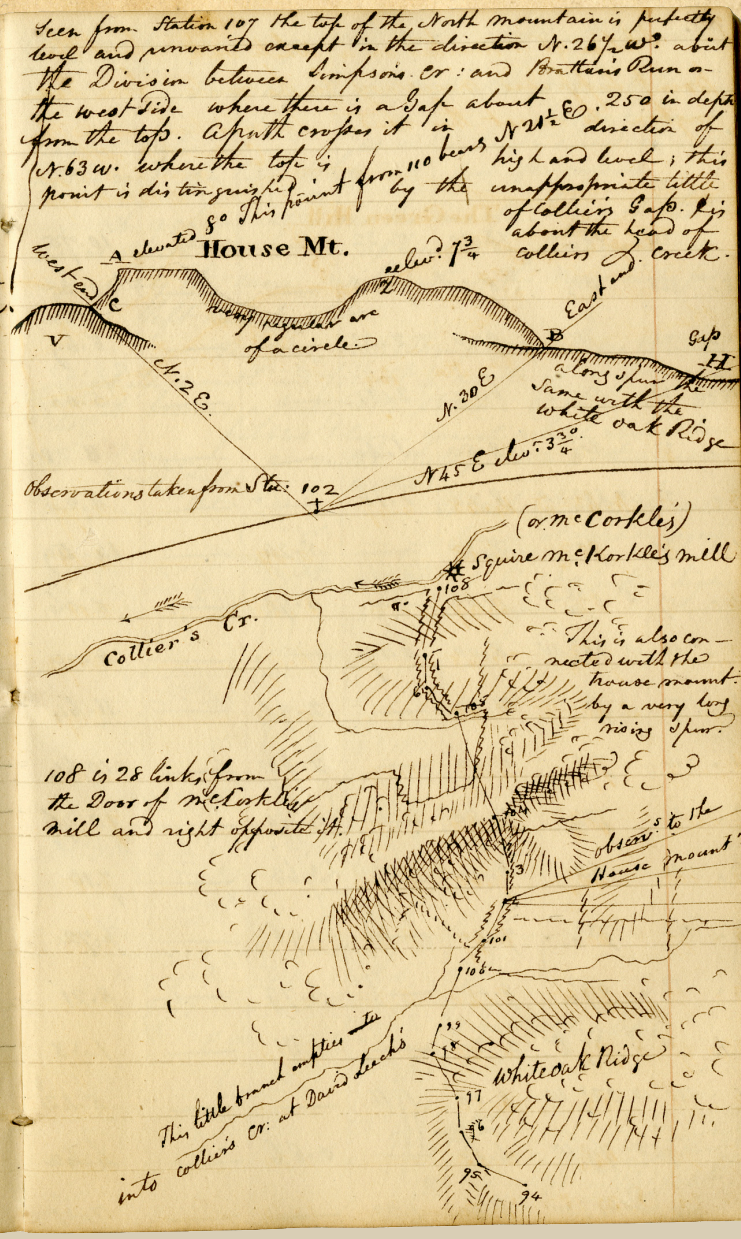 Seen from Station 107 the top of the North mountain is perfectly
level and unvaried except in the direction N. 26½ W. about
the Division between Simpsons Cr: and Brattons Run on
the west side where there is a Gap about .250 in depth
from the top. A path crosses it in direction of
N. 63 W. where the top is high and level; this
point is distinguished by the unappropriate title
of Colliers Gap. & is
about the head of
Colliers creek.
This point from 110 bears N 21½ E
A elevated 8°
House Mt.
elevd. 7¾
West end
C
V
Z
very regular arc
of a circle
East end
B
Gap
H
a long spur the
same with the
white oak Ridge
N. 2 E.
N. 30 E
N 45 E elevn. 3¾°
Observations taken from Sta: 102
(or McCorkle's)
Squire McKorkle's mill
108
Collier's Cr.
This is also con-
nected with the
house mount.
by a very long
rising spur.
108 is 28 links from
the Door of McCorkles
mill and right opposite it.
observs to the
House mount
3
101
99
98
Whiteoak Ridge
97
96
95
94
This little branch empties
into Collier's Cr: at David Leech's